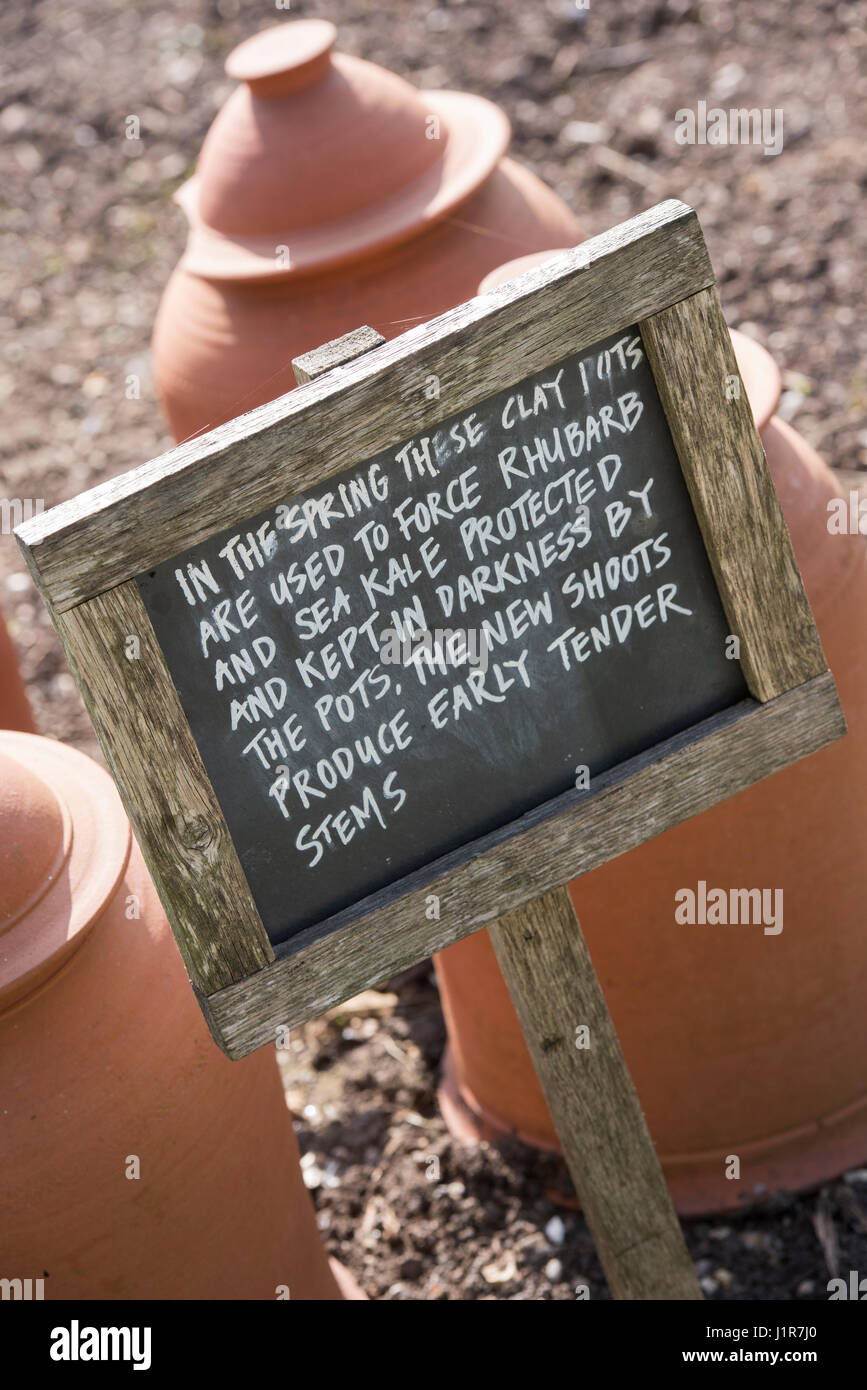 IN THE SPRING THESE CLAY POTS
ARE USED TO FORCE RHUBARB
AND SEA KALE PROTECTED
AND KEPT IN DARKNESS BY
THE POTS. THE NEW SHOOTS
PRODUCE EARLY TENDER
STEMS
alamy stock photo
J1R7J0
www.alamy.com